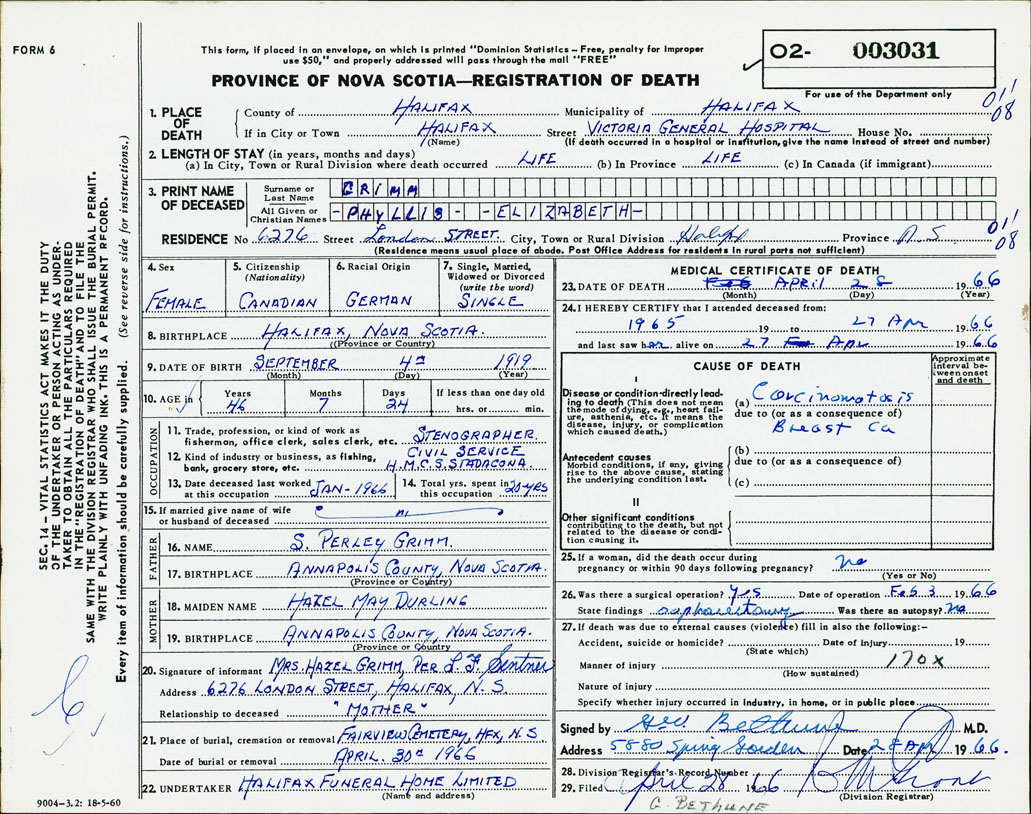 FORM 6
This form, if placed in an envelope, on which is printed "Dominion Statistics – Free, penalty for improper
use $50," and properly addressed will pass through the mail "FREE"
PROVINCE OF NOVA SCOTIA—REGISTRATION OF DEATH
O2- 003031
For use of the Department only
011
08
1. PLACE OF DEATH
County of HALIFAX Municipality of HALIFAX
If in City or Town HALIFAX Street VICTORIA GENERAL HOSPITAL House No.
(Name) (If death occurred in a hospital or institution, give the name instead of street and number)
2. LENGTH OF STAY (in years, months and days)
(a) In City, Town or Rural Division where death occurred LIFE (b) In Province LIFE (c) In Canada (if immigrant)
3. PRINT NAME OF DECEASED
Surname or Last Name GRIMM
All Given or Christian Names -PHYLLIS--ELIZABETH-
RESIDENCE No 6276 Street London STREET. City, Town or Rural Division Halifx Province N.S
(Residence means usual place of abode. Post Office Address for residents in rural parts not sufficient)
011
08
4. Sex
FEMALE
5. Citizenship
(Nationality)
CANADIAN
6. Racial Origin
GERMAN
7. Single, Married,
Widowed or Divorced
(write the word)
SINGLE
8. BIRTHPLACE HALIFAX, NOVA SCOTIA.
(Province or Country)
9. DATE OF BIRTH SEPTEMBER 4th 1919
(Month) (Day) (Year)
10. AGE in Years 46 Months 7 Days 24 If less than one day old hrs. or min.
OCCUPATION
11. Trade, profession, or kind of work as
fisherman, office clerk, sales clerk, etc. STENOGRAPHER.
12. Kind of industry or business, as fishing,
bank, grocery store, etc. CIVIL SERVICE
H.M.C.S. STADACONA
13. Date deceased last worked
at this occupation JAN-1966
14. Total yrs. spent in
this occupation 20 YRS
15. If married give name of wife
or husband of deceased
FATHER
16. NAME S. PERLEY GRIMM.
17. BIRTHPLACE ANNAPOLIS COUNTY, NOVA SCOTIA.
(Province or Country)
MOTHER
18. MAIDEN NAME HAZEL MAY DURLING
19. BIRTHPLACE ANNAPOLIS COUNTY, NOVA SCOTIA.
(Province or Country)
20. Signature of informant MRS. HAZEL GRIMM, PER L.F. Sentner
Address 6276 LONDON STREET, HALIFAX, N.S.
Relationship to deceased "MOTHER"
21. Place of burial, cremation or removal FAIRVIEW CEMETERY, HFX, N.S
Date of burial or removal APRIL. 30th 1966
22. UNDERTAKER HALIFAX FUNERAL HOME LIMITED
(Name and address)
MEDICAL CERTIFICATE OF DEATH
23. DATE OF DEATH APRIL 28 1966
(Month) (Day) (Year)
24. I HEREBY CERTIFY that I attended deceased from:
1965 19 to 27 Apr 1966
and last saw her alive on 27 Apr 1966
CAUSE OF DEATH
Approximate
interval be-
tween onset
and death
I
Disease or condition directly lead-
ing to death (This does not mean
the mode of dying, e.g., heart fail-
ure, asthenia, etc. It means the
disease, injury, or complication
which caused death.)
(a) Carcinomatosis
due to (or as a consequence of)
Breast Ca
Antecedent causes
Morbid conditions, if any, giving
rise to the above cause, stating
the underlying condition last.
(b)
due to (or as a consequence of)
(c)
II
Other significant conditions
contributing to the death, but not
related to the disease or condi-
tion causing it.
25. If a woman, did the death occur during
pregnancy or within 90 days following pregnancy? no
(Yes or No)
26. Was there a surgical operation? Yes Date of operation Feb 3 1966
State findings Was there an autopsy? No
27. If death was due to external causes (violence) fill in also the following:-
Accident, suicide or homicide? Date of injury 19
(State which)
Manner of injury 170X
(How sustained)
Nature of injury
Specify whether injury occurred in industry, in home, or in public place
Signed by Geo Bethune M.D.
Address 5880 Spring Garden Date 28 Apr 1966.
28. Division Registrar's Record Number
29. Filed April 28 1966
(Division Registrar)
G. BETHUNE
SEC. 14 — VITAL STATISTICS ACT MAKES IT THE DUTY
OF THE UNDERTAKER OR PERSON ACTING AS UNDER-
TAKER TO OBTAIN ALL THE PARTICULARS REQUIRED
IN THE "REGISTRATION OF DEATH" AND TO FILE THE
SAME WITH THE DIVISION REGISTRAR WHO SHALL ISSUE THE BURIAL PERMIT.
WRITE PLAINLY WITH UNFADING INK. THIS IS A PERMANENT RECORD.
Every item of information should be carefully supplied. (See reverse side for instructions.)
9004-3.2: 18-5-60